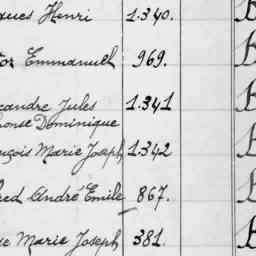 ques Henri 1.340. B
tor Emmanuel 969. B
exandre Jules 1.341 B
phonse Dominique
nçois Marie Joseph 1.342 B
red André Emile 867. B
se Marie Joseph 381. B